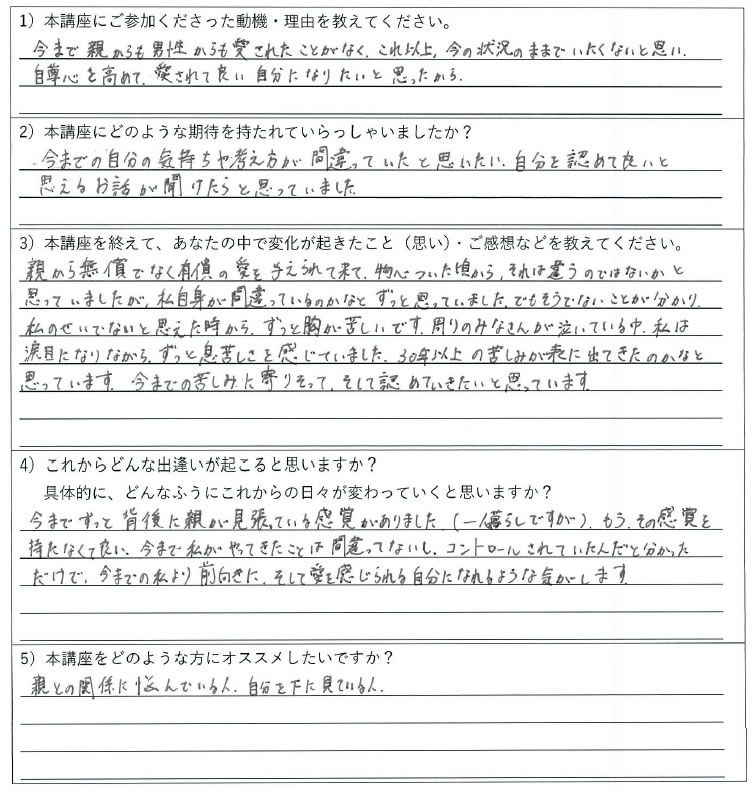 1）本講座にご参加くださった動機・理由を教えてください。
今まで親からも男性からも愛されたことがなく、これ以上、今の状況のままでいたくないと思い、
自尊心を高めて、愛されて良い自分になりたいと思ったから。
2）本講座にどのような期待を持たれていらっしゃいましたか？
今までの自分の気持ちや考え方が間違っていたと思いたい、自分を認めて良いと
思えるお話が聞けたらと思っていました。
3）本講座を終えて、あなたの中で変化が起きたこと（思い）・ご感想などを教えてください。
親から無償でなく有償の愛を与えられて来て、物心ついた頃から、それは違うのではないかと
思っていましたが、私自身が間違っているのかなとずっと思っていました。でもそうでないことが分かり、
私のせいでないと思えた時から、ずっと胸が苦しいです。周りのみなさんが泣いている中、私は
涙目になりながら、ずっと息苦しさを感じていました。30年以上の苦しみが表に出てきたのかなと
思っています。今までの苦しみに寄りそって、そして認めていきたいと思っています。
4）これからどんな出逢いが起こると思いますか？
具体的に、どんなふうにこれからの日々が変わっていくと思いますか？
今までずっと背後に親が見張っている感覚がありました（一人暮らしですが）。もう、その感覚を
持たなくて良い、今まで私がやってきたことは間違ってないし、コントロールされていたんだと分かった
だけで、今までの私より前向きに、そして愛を感じられる自分になれるような気がします。
5）本講座をどのような方にオススメしたいですか？
親との関係に悩んでいる人、自分を下に見ている人。